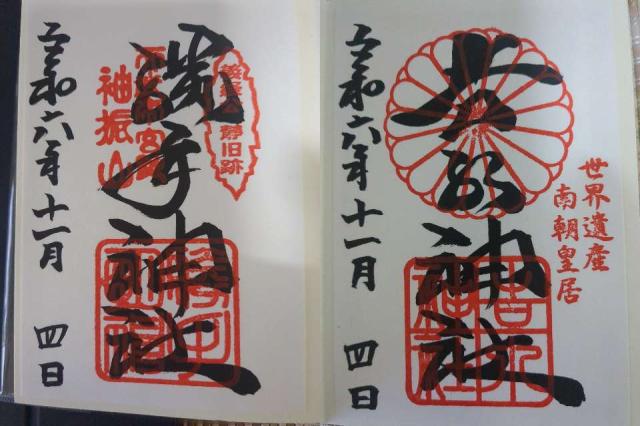 世界遺産
南朝皇居
吉水神社
令和六年十一月 四日
勝手神社
袖振山
令和六年十一月 四日